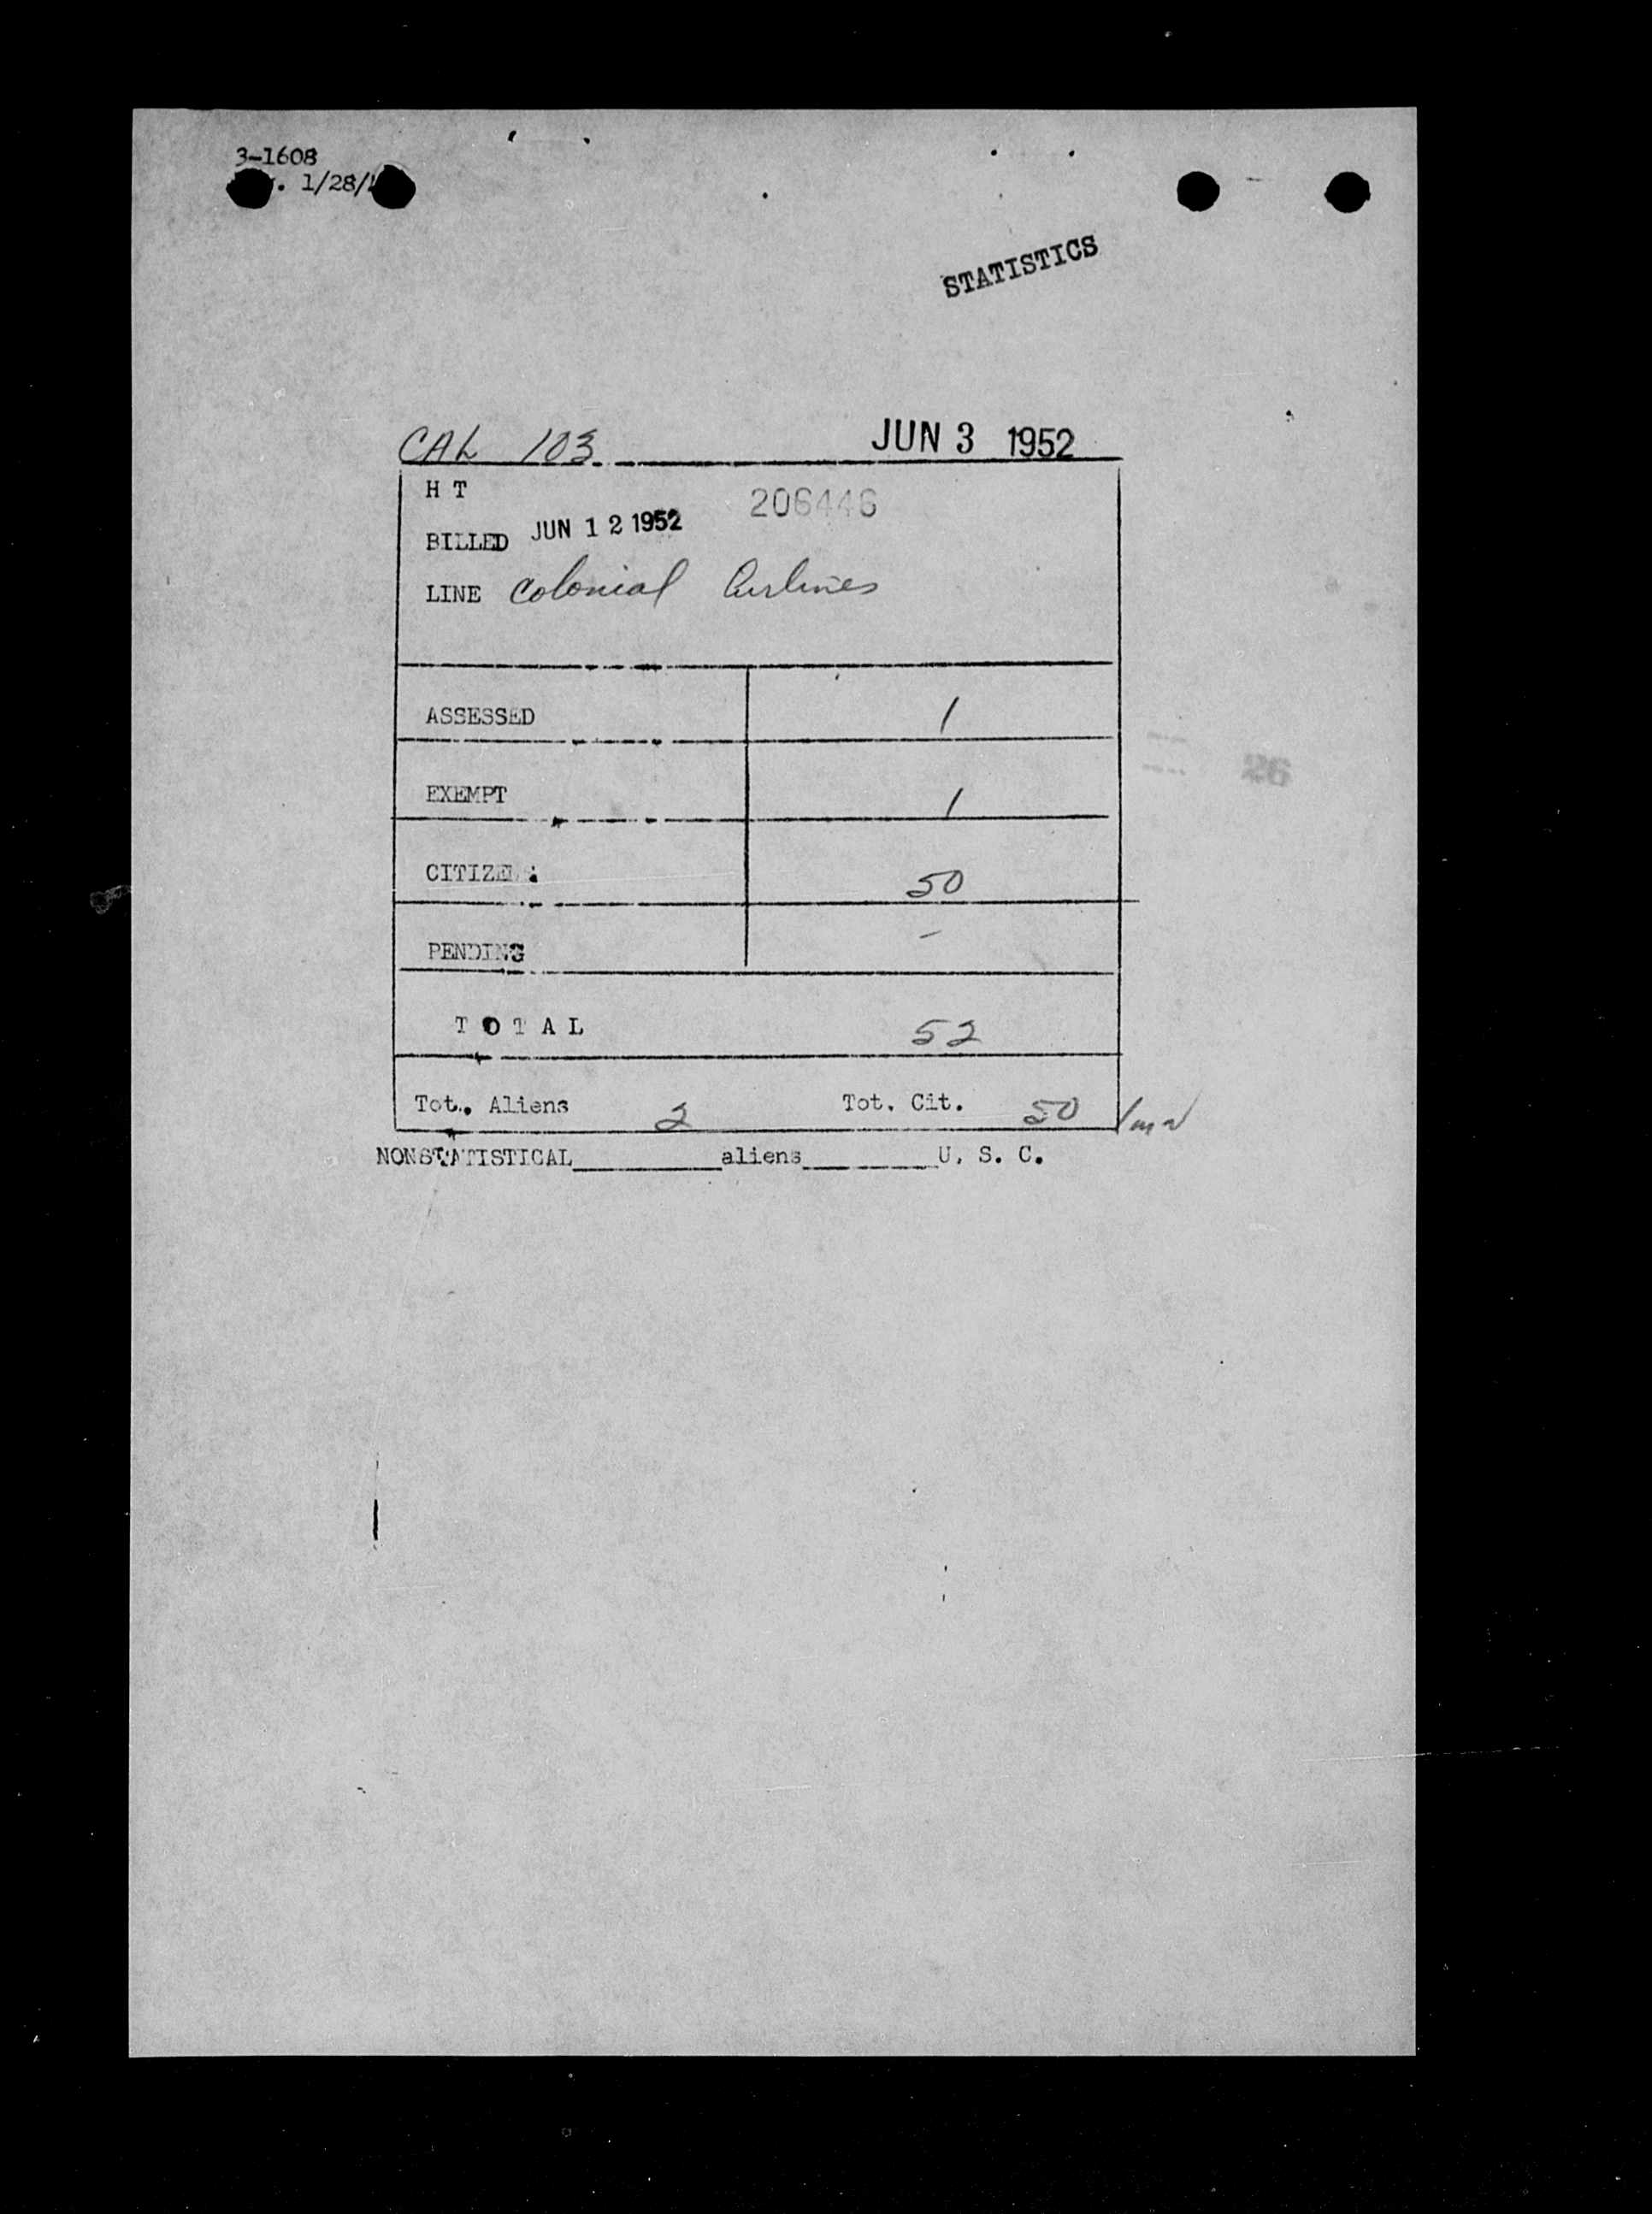 3-1608
1/28/
STATISTICS
CAL 103 JUN 3 1952
H T 206446
BILLED JUN 12 1952
LINE Colonial Airlines
ASSESSED 1
EXEMPT 1
CITIZENS 50
PENDING -
TOTAL 52
Tot. Aliens 2 Tot. Cit. 50
NONSTATISTICAL________aliens________U. S. C.
26